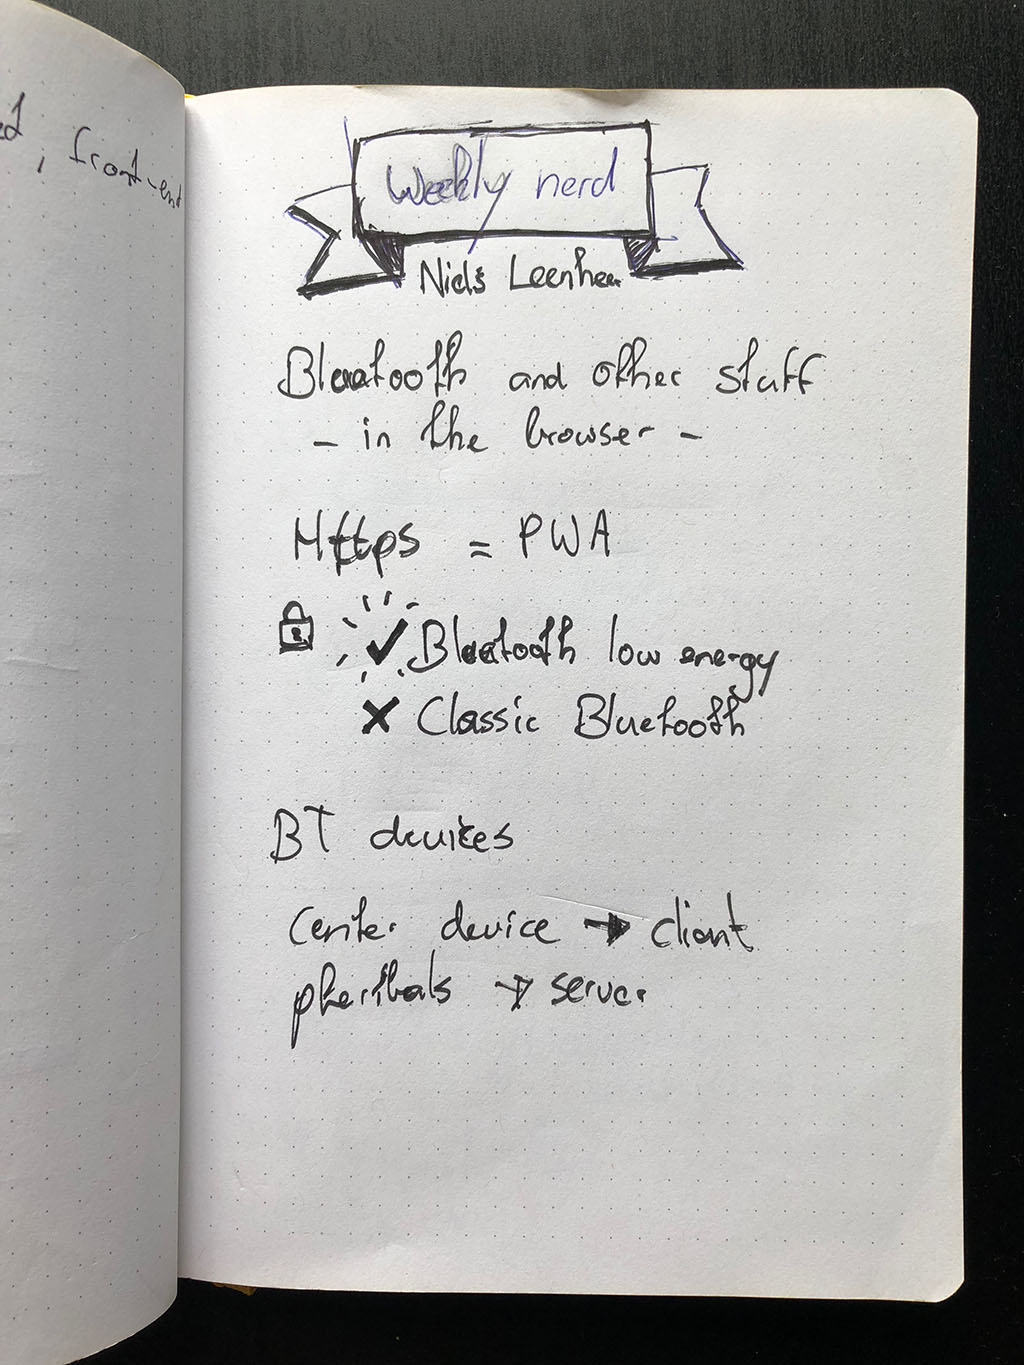 , front-end
Weekly nerd
Niels Leenhee
Bluetooth and other stuff
- in the browser -
Https = PWA
✓ Bluetooth low energy
✗ Classic Bluetooth
BT devices
Center device → client
pheribals → server